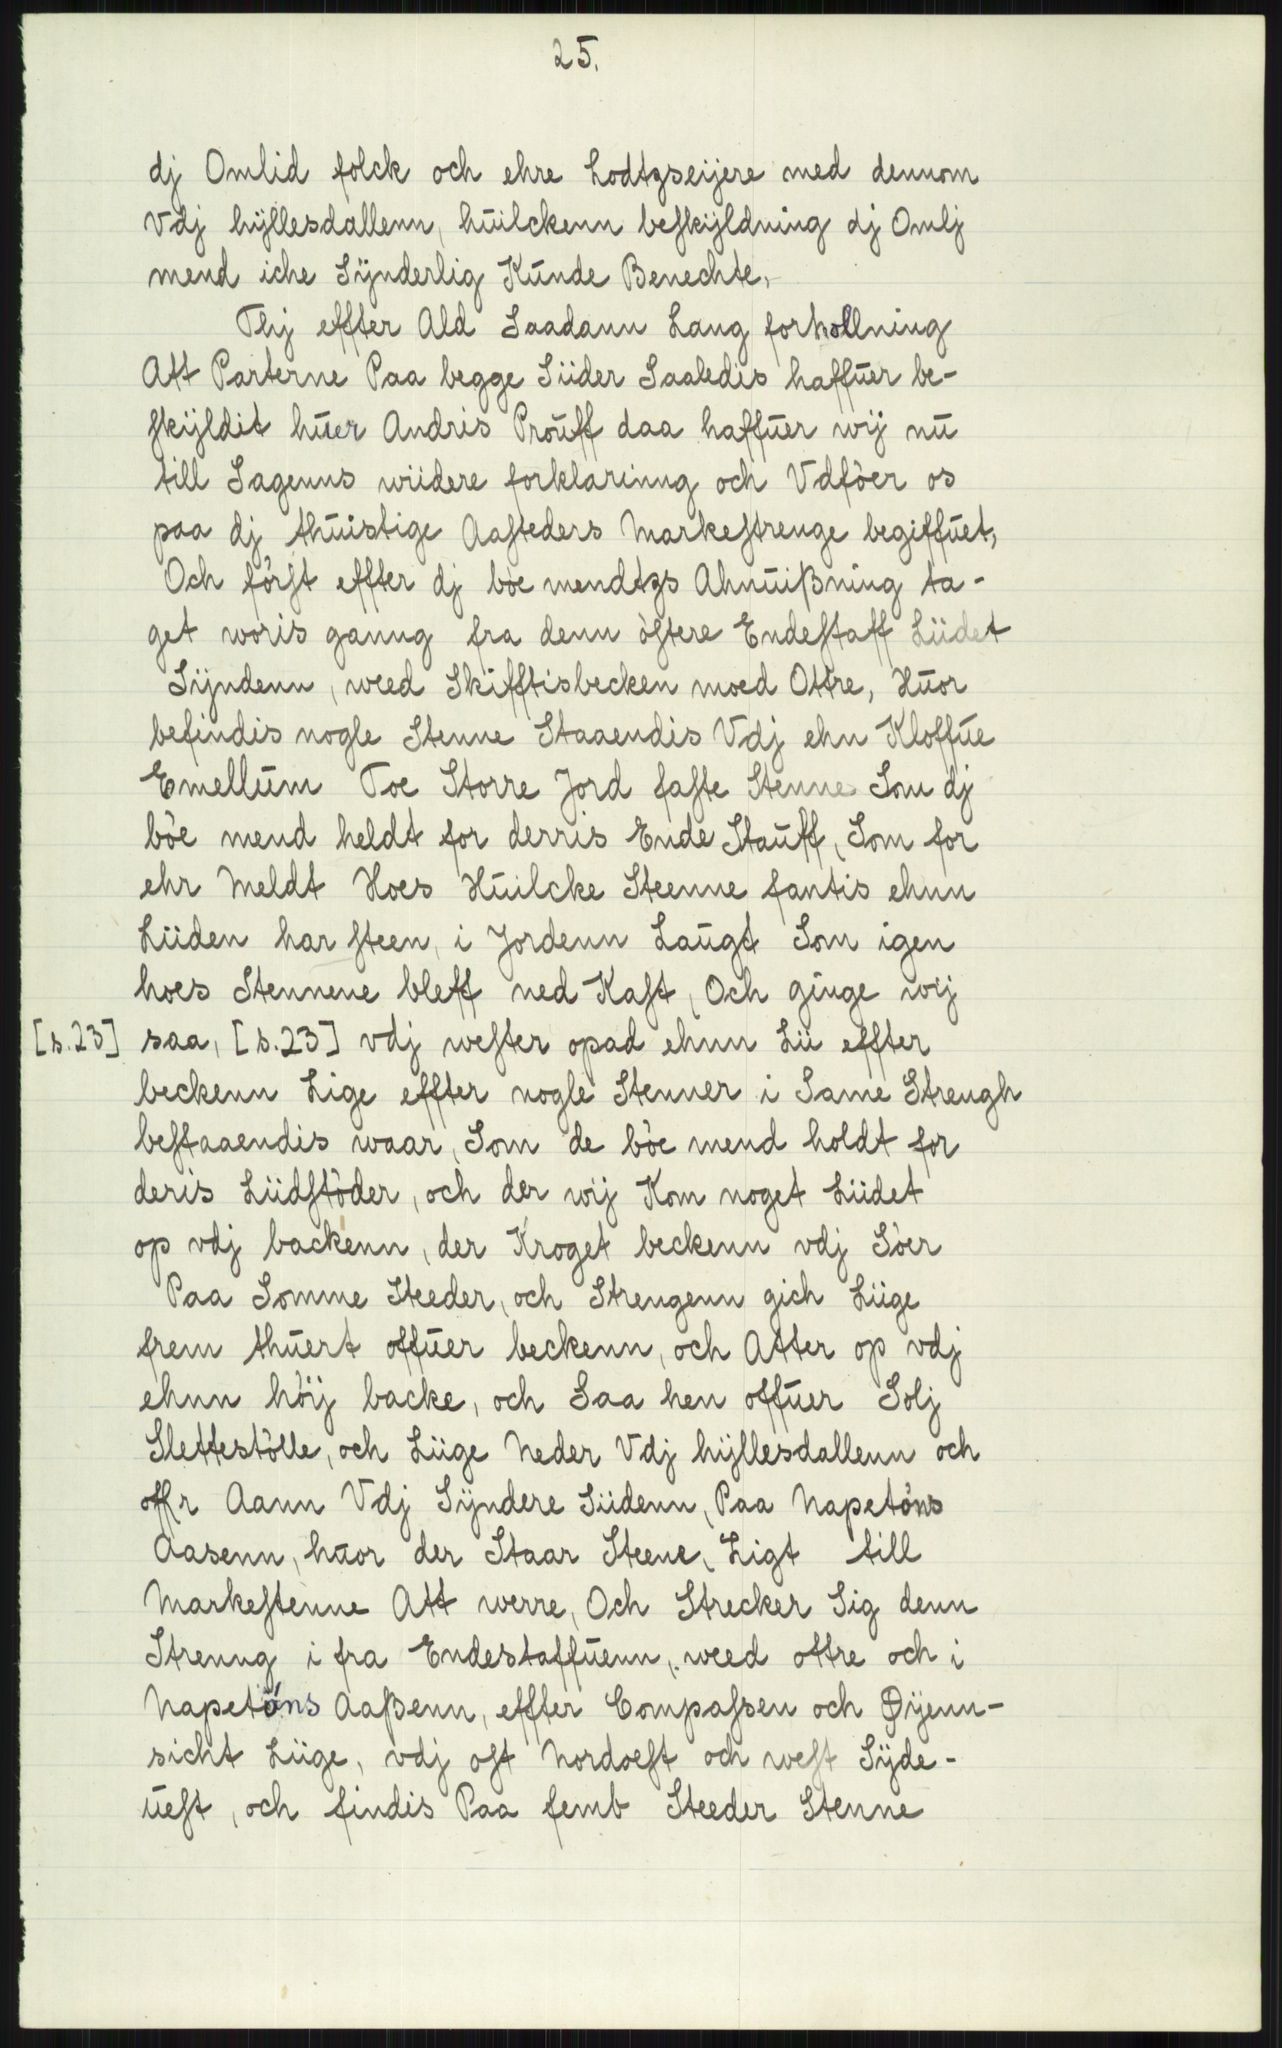 25.
dj Omlid folck och ehre Lodtzseijere med dennom
Vdj hÿllesdallenn, huilckenn beskÿldning dj Omlj
mend iche Sÿnderlig Kunde Benechte,
Thj effter Ald Saadann Lang forhollning
Att Parterne Paa begge Siider Saaledis haffuer be-
skÿldit huer Andris Prouff daa haffuer wij nu
till Sagenns wiidere forklarinng och Vdföer os
paa dj thuistige Aasteders Markestrenge begiffuet,
Och först effter dj böe mendtzs Ahnuißning ta-
get woris ganng fra denn östere Endestaff Liidet
Sÿndenn, weed Skifftisbecken moed Ottre, Huor
befindis nogle Stenne Staaendis Vdj ehn Kloffue
Emellum Toe Storre Jord faste Stenne Som dj
böe mend heldt for derris Ende Stauff, Som for
ehr Meldt Hoes Huilcke Steenne fantis ehnn
Liiden har steen, i Jordenn Laugt Som igen
hoes Stennene bleff ned Kast, Och ginge wij
[s.23] saa, [s.23] vdj wester opad ehnn Lii effter
beckenn Lige effter nogle Stenner i Same Strengh
bestaaendis waar, Som de böe mend holdt for
deris Liidstöder, och der wij Kom noget Liidet
op vdj backenn, der Kroget beckenn vdj Söer
Paa Somme Steeder, och Strengenn gich Liige
frem thuert offuer beckenn, och Atter op vdj
ehnn höij backe, och Saa hen offuer Solj
Slettestölle, och Liige Neder Vdj hÿllesdallenn och
offr Aann Vdj Sÿndere Siidenn, Paa Napetöns
Aasenn, huor der Staar Steene, Ligt till
Markestenne Att werre, Och Strecker Sig denn
Strenng i fra Endestaffuenn, weed ottre och i
Napetöns Aaßenn, effter Compassen och Øÿenn-
sicht Liige, vdj ost Nordoest och west Sÿde-
uest, och findis Paa femb Steeder Stenne